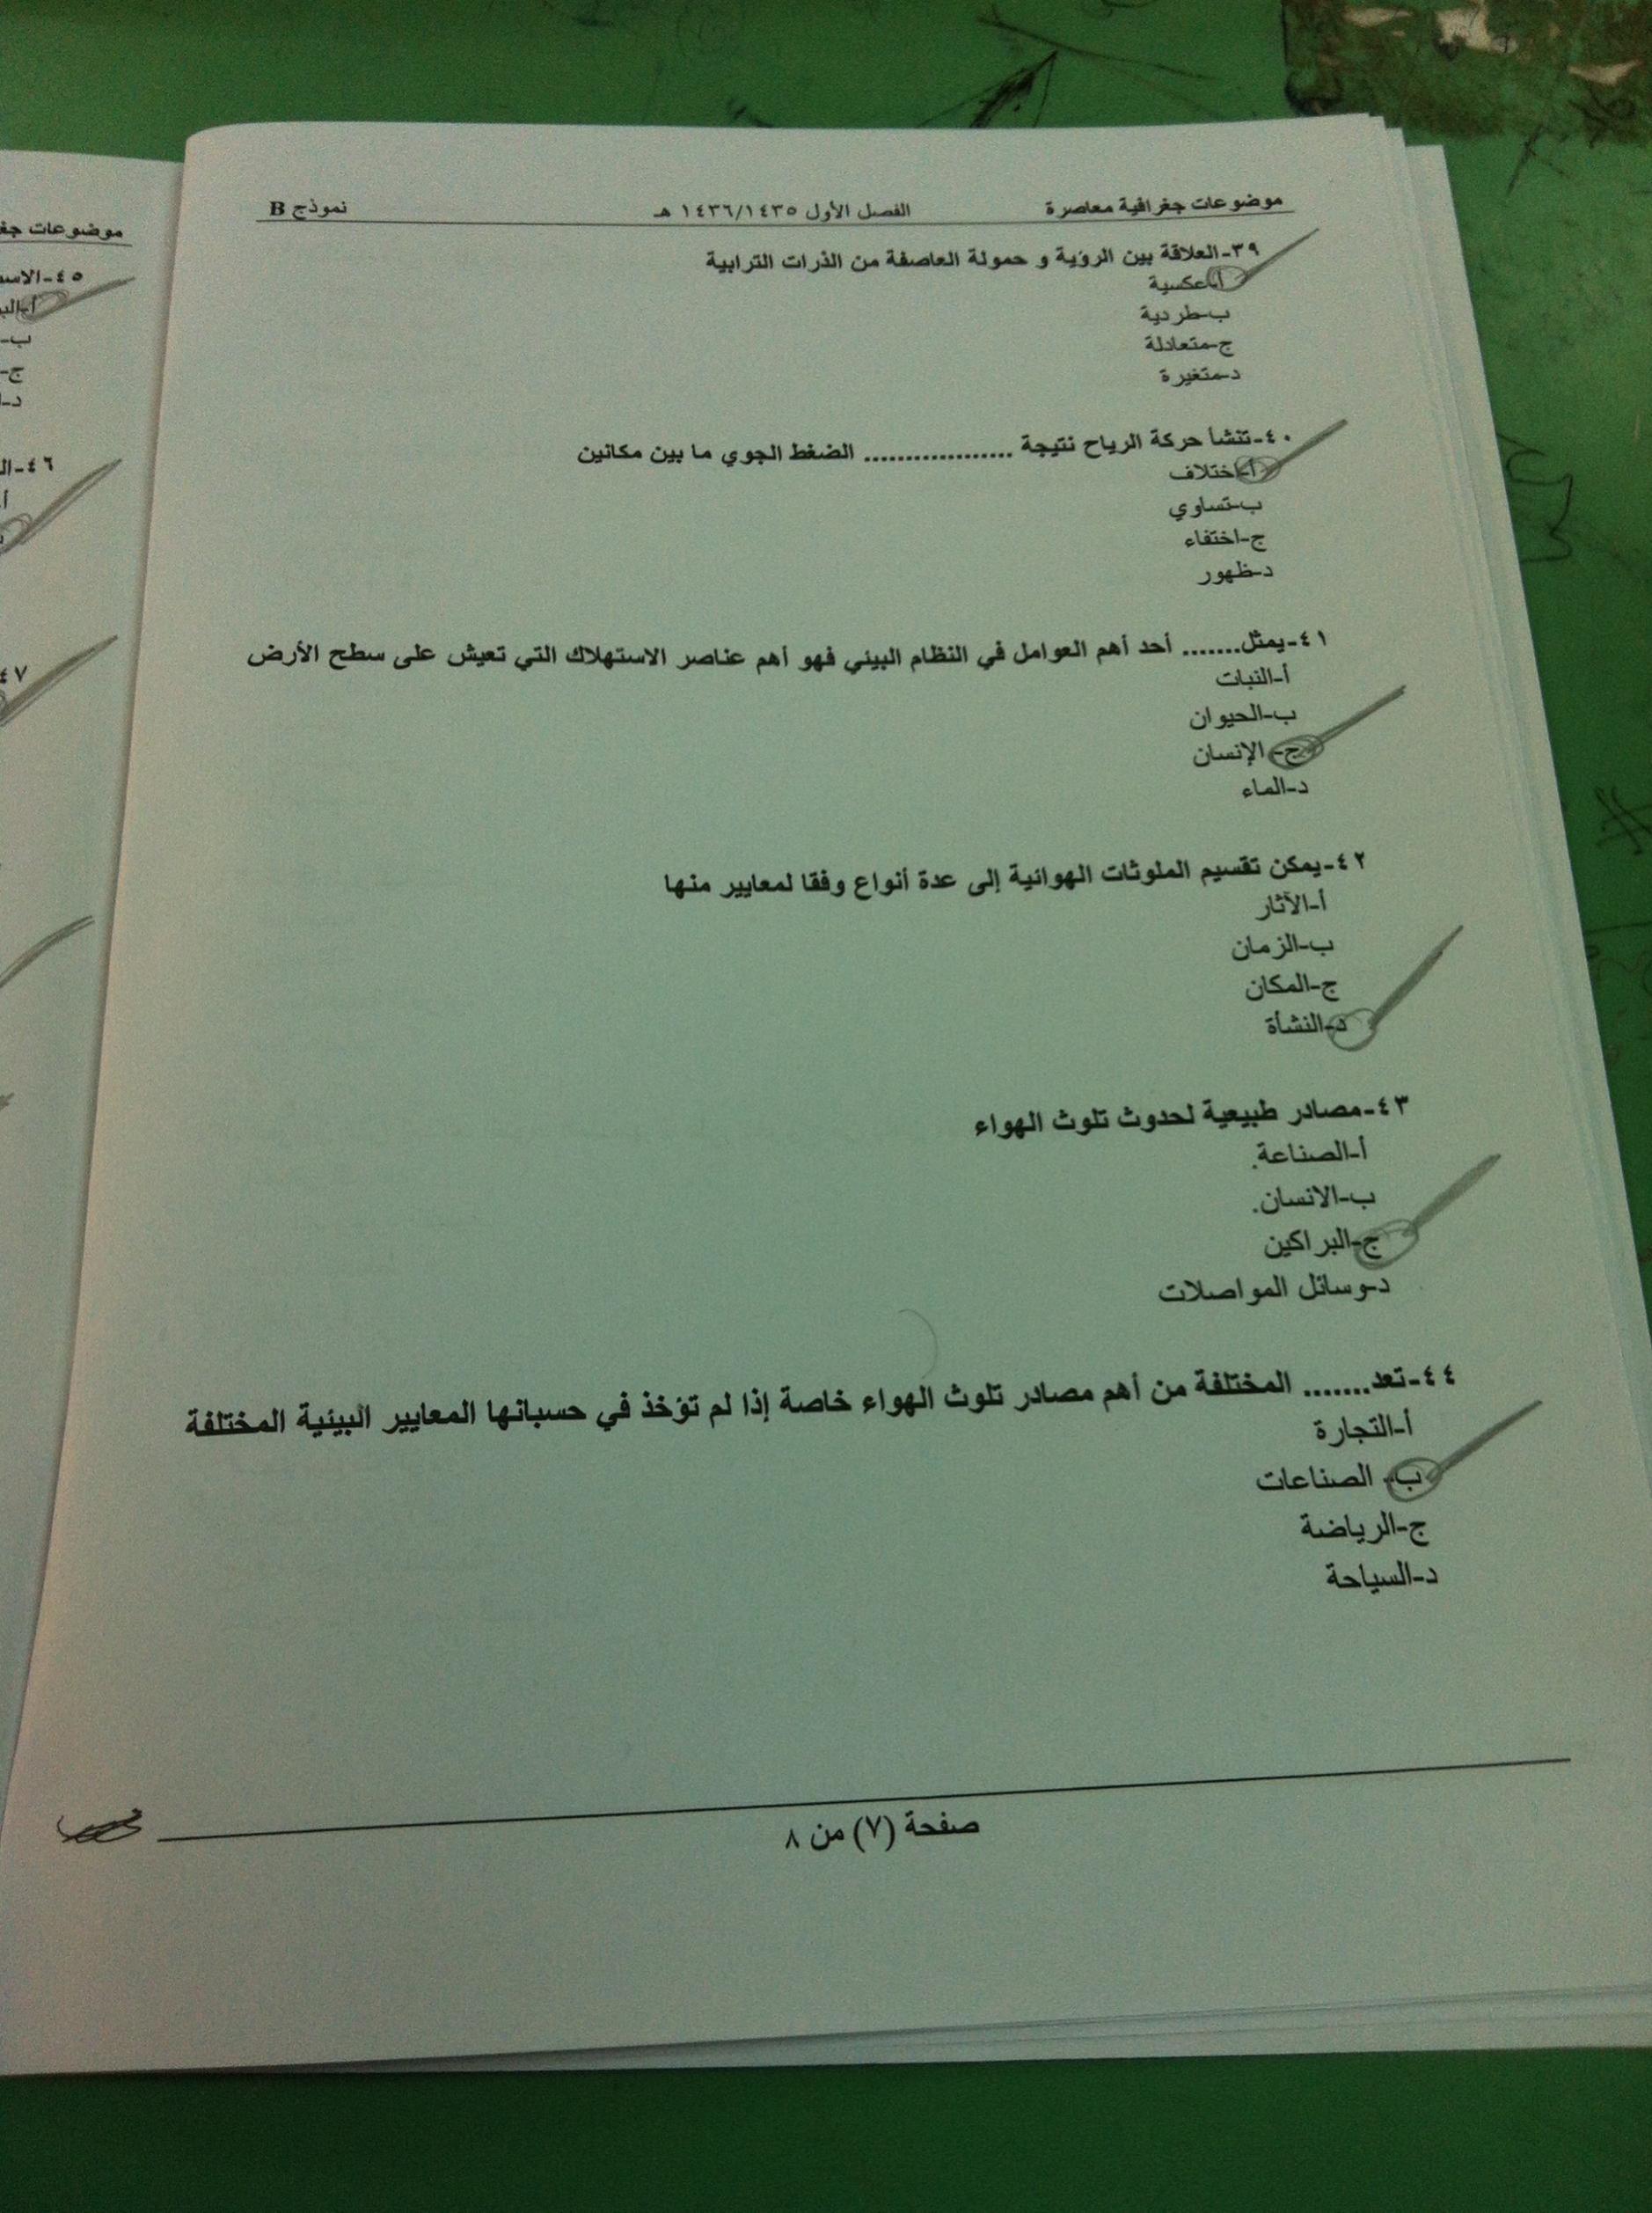 موضوعات جغرافية معاصرة الفصل الأول ١٤٣٦/١٤٣٥ هـ نموذج B
٣٩-العلاقة بين الرؤية و حمولة العاصفة من الذرات الترابية
أ-عكسية
ب-طردية
ج-متعادلة
د-متغيرة
٤٠-تنشأ حركة الرياح نتيجة .................. الضغط الجوي ما بين مكانين
أ-اختلاف
ب-تساوي
ج-اختفاء
د-ظهور
٤١-يمثل....... أحد أهم العوامل في النظام البيئي فهو أهم عناصر الاستهلاك التي تعيش على سطح الأرض
أ-النبات
ب-الحيوان
ج- الإنسان
د-الماء
٤٢-يمكن تقسيم الملوثات الهوائية إلى عدة أنواع وفقا لمعايير منها
أ-الآثار
ب-الزمان
ج-المكان
د-النشأة
٤٣-مصادر طبيعية لحدوث تلوث الهواء
أ-الصناعة.
ب-الانسان.
ج-البراكين
د-وسائل المواصلات
٤٤-تعد....... المختلفة من أهم مصادر تلوث الهواء خاصة إذا لم تؤخذ في حسبانها المعايير البيئية المختلفة
أ-التجارة
ب- الصناعات
ج-الرياضة
د-السياحة
صفحة (٧) من ٨
موضوعات
٤٥-
ب-
ج-
٤٦-
٤٧